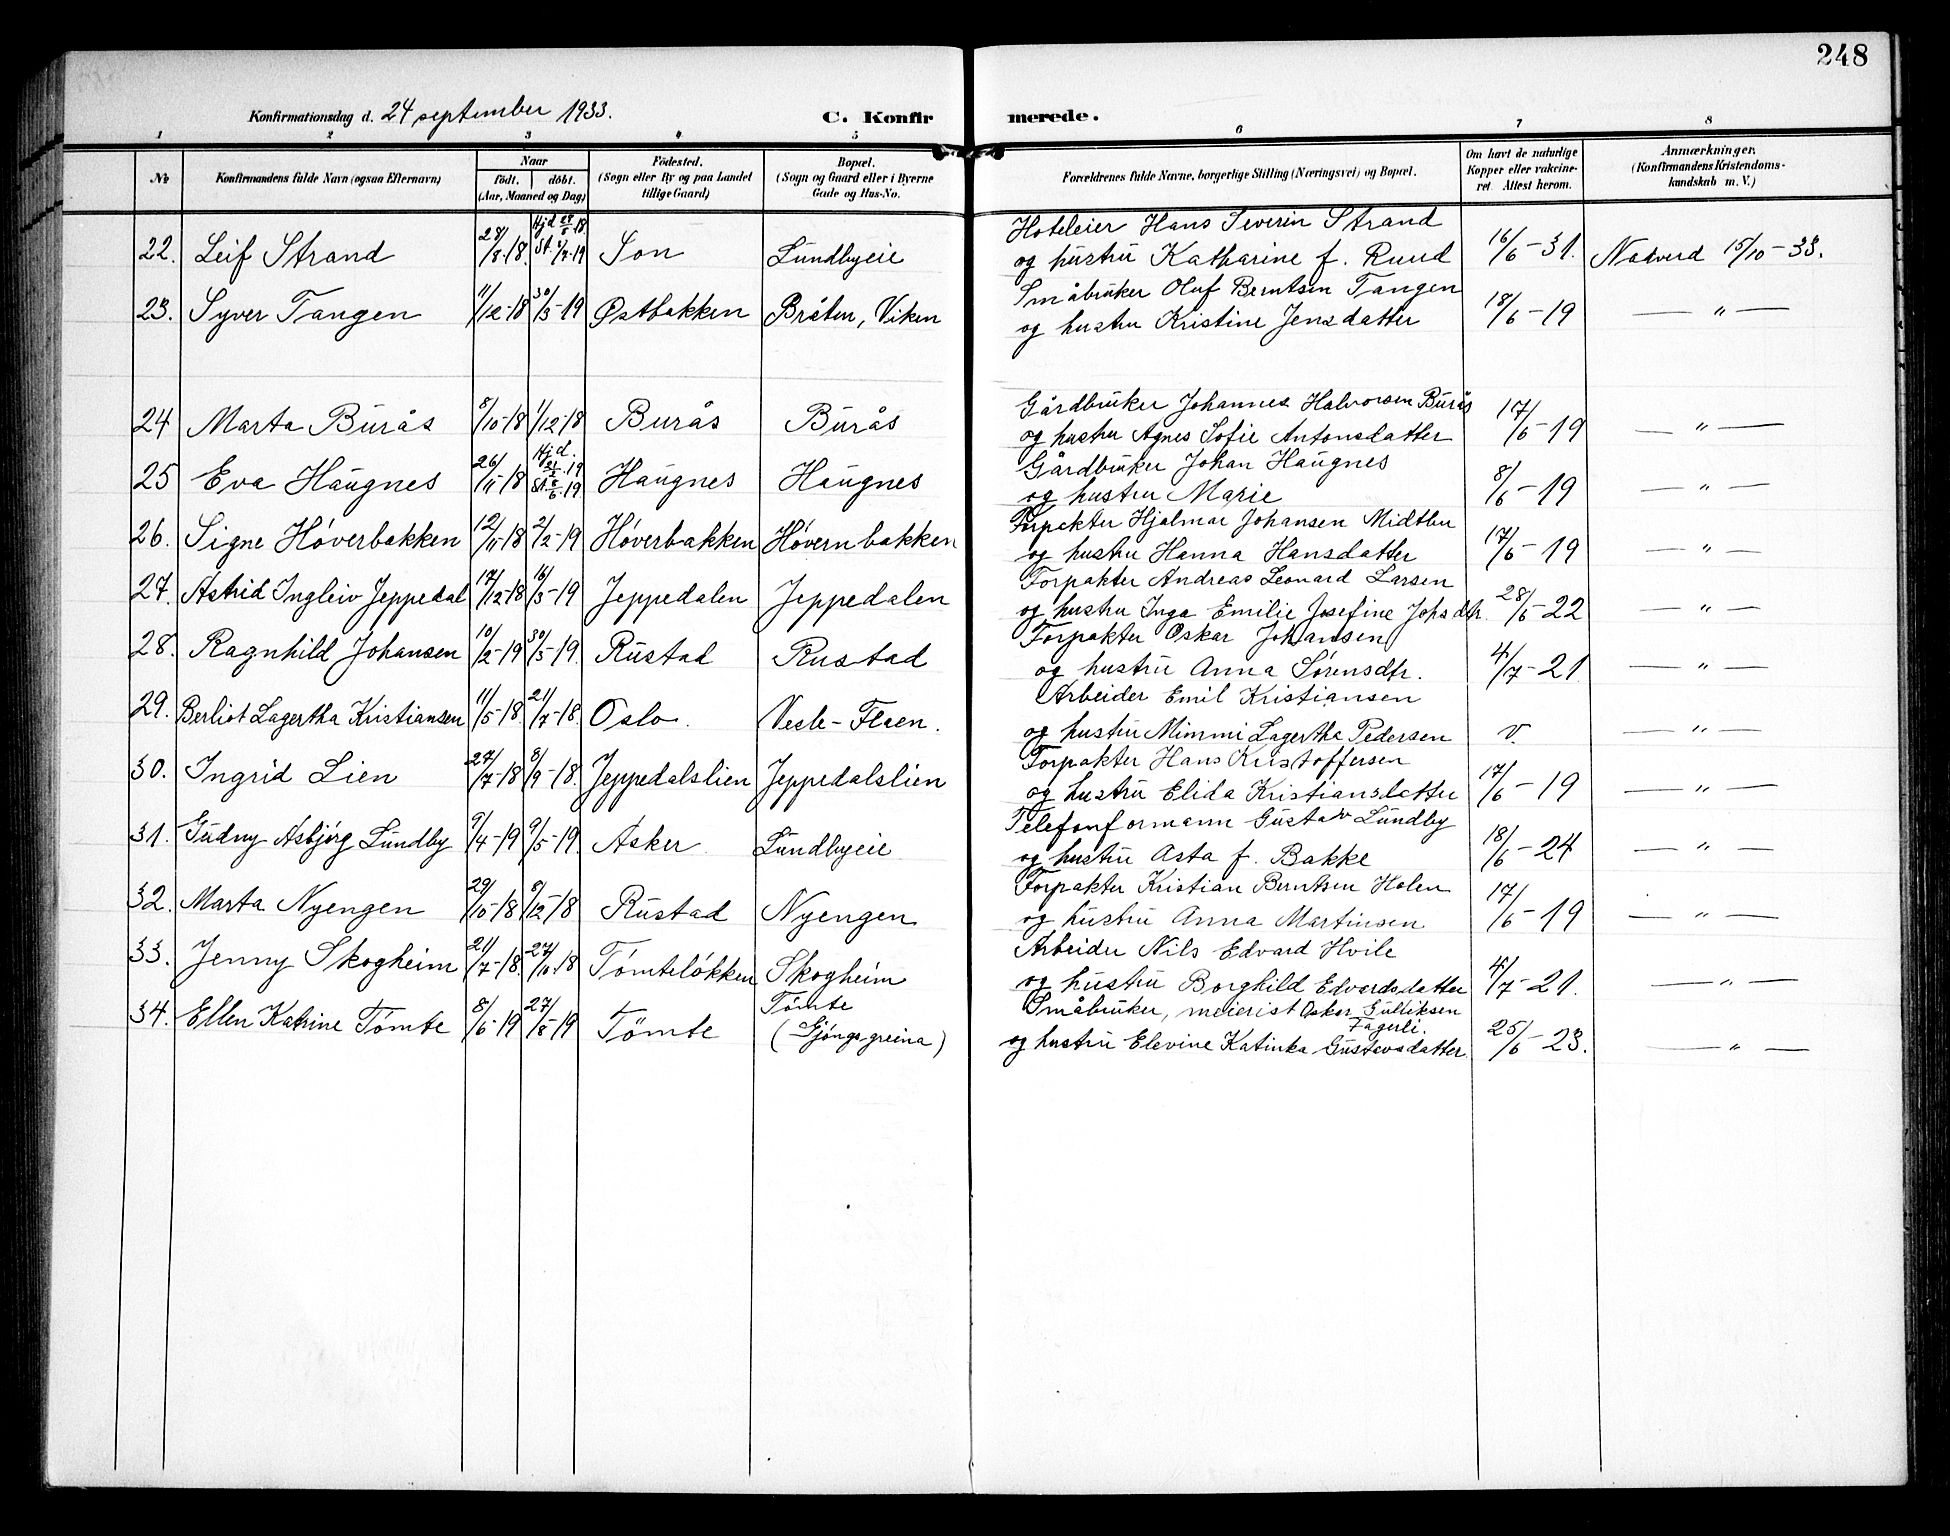 248
Konfirmationsdag d. 24 september 1933. C. Konfirmerede.
1 2 3 4 5 6 7 8
No. Konfirmandens fulde Navn (ogsaa Efternavn) Naar født. døbt. (Aar, Maaned og Dag) Fødested. (Sogn eller By og paa Landet tillige Gaard) Bopæl. (Sogn og Gaard eller i Byerne Gade og Hus-No. Forældrenes fulde Navne, borgerlige Stilling (Næringsvei) og Bopæl. Om havt de naturlige Kopper eller vakcineret. Attest herom. Anmærkninger. (Konfirmandens Kristendomskundskab m. V.)
22. Leif Strand 28/8-18. Hjd 28/8-18 St. /9-19 Son Lundbyeie Hoteleier Hans Severin Strand
og hustru Katharine f. Ruud 16/6-31. Nadverd 15/10-33.
23. Syver Tangen 11/12-18 30/3-19 Østbakken Bråten, Viken Småbruker Oluf Berntsen Tangen
og hustru Kristine Jensdatter 18/6-19 — " —
24 Marta Burås 8/10-18 1/12-18 Burås Burås Gårdbruker Johannes Halvorsen Burås
og hustru Agnes Sofie Antonsdatter 17/6-19 — " —
25 Eva Haugnes 26/11-18 Hjd. -19 St. 8/6-19 Haugnes Haugnes Gårdbruker Johan Haugnes
og hustru Marie 8/6-19 — " —
26. Signe Høverbakken 12/11-18 2/2-19 Høverbakken Høvernbakken Forpakter Hjalmar Johansen Midtbu
og hustru Hanna Hansdatter 17/6-19 — " —
27. Astrid Ingleiv Jeppedal 17/12-18 16/3-19 Jeppedalen Jeppedalen Forpakter Andreas Leonard Larsen
og hustru Inga Emilie Josefine Johsdtr. 28/6-22 — " —
28. Ragnhild Johansen 10/2-19 30/5-19. Rustad Rustad Forpakter Oskar Johansen
og hustru Anna Sørensdtr. 4/7-21 — " —
29. Berliot Lagertha Kristiansen 11/5-18. 21/7-18. Oslo. Vesle-Flaen. Arbeider Emil Kristiansen
og hustru Mimmi Lagertha Pedersen v. — " —
30. Ingrid Lien 27/7-18 8/9-18. Jeppedalslien Jeppedalslien Forpakter Hans Kristoffersen
og hustru Elida Kristiansdatter 17/6-19 — " —
31. Gudny Asbjørg Lundby 9/4-19 9/5-19. Asker Lundbyeie Telefonformann Gustav Lundby
og hustru Asta f. Bakke 18/6-24 — " —
32. Marta Nyengen 29/10-18 8/12-18 Rustad Nyengen Forpakter Kristian Berntsen Holen
og hustru Anna Martinsen 17/6-19 — " —
33. Jenny Skogheim 21/7-18. 27/10-18 Tømteløkken Skogheim Arbeider Nils Edvard Hvile
og hustru Borghild Edvardsdatter 4/7-21. — " —
34. Ellen Katrine Tømte 8/6-19 27/8-19 Tømte Tømte (Gjøngsgreina) Småbruker, meierist Oskar Gulliksen Fagerli.
og hustru Elevine Katinka Gustavsdatter 25/6-23. — " —